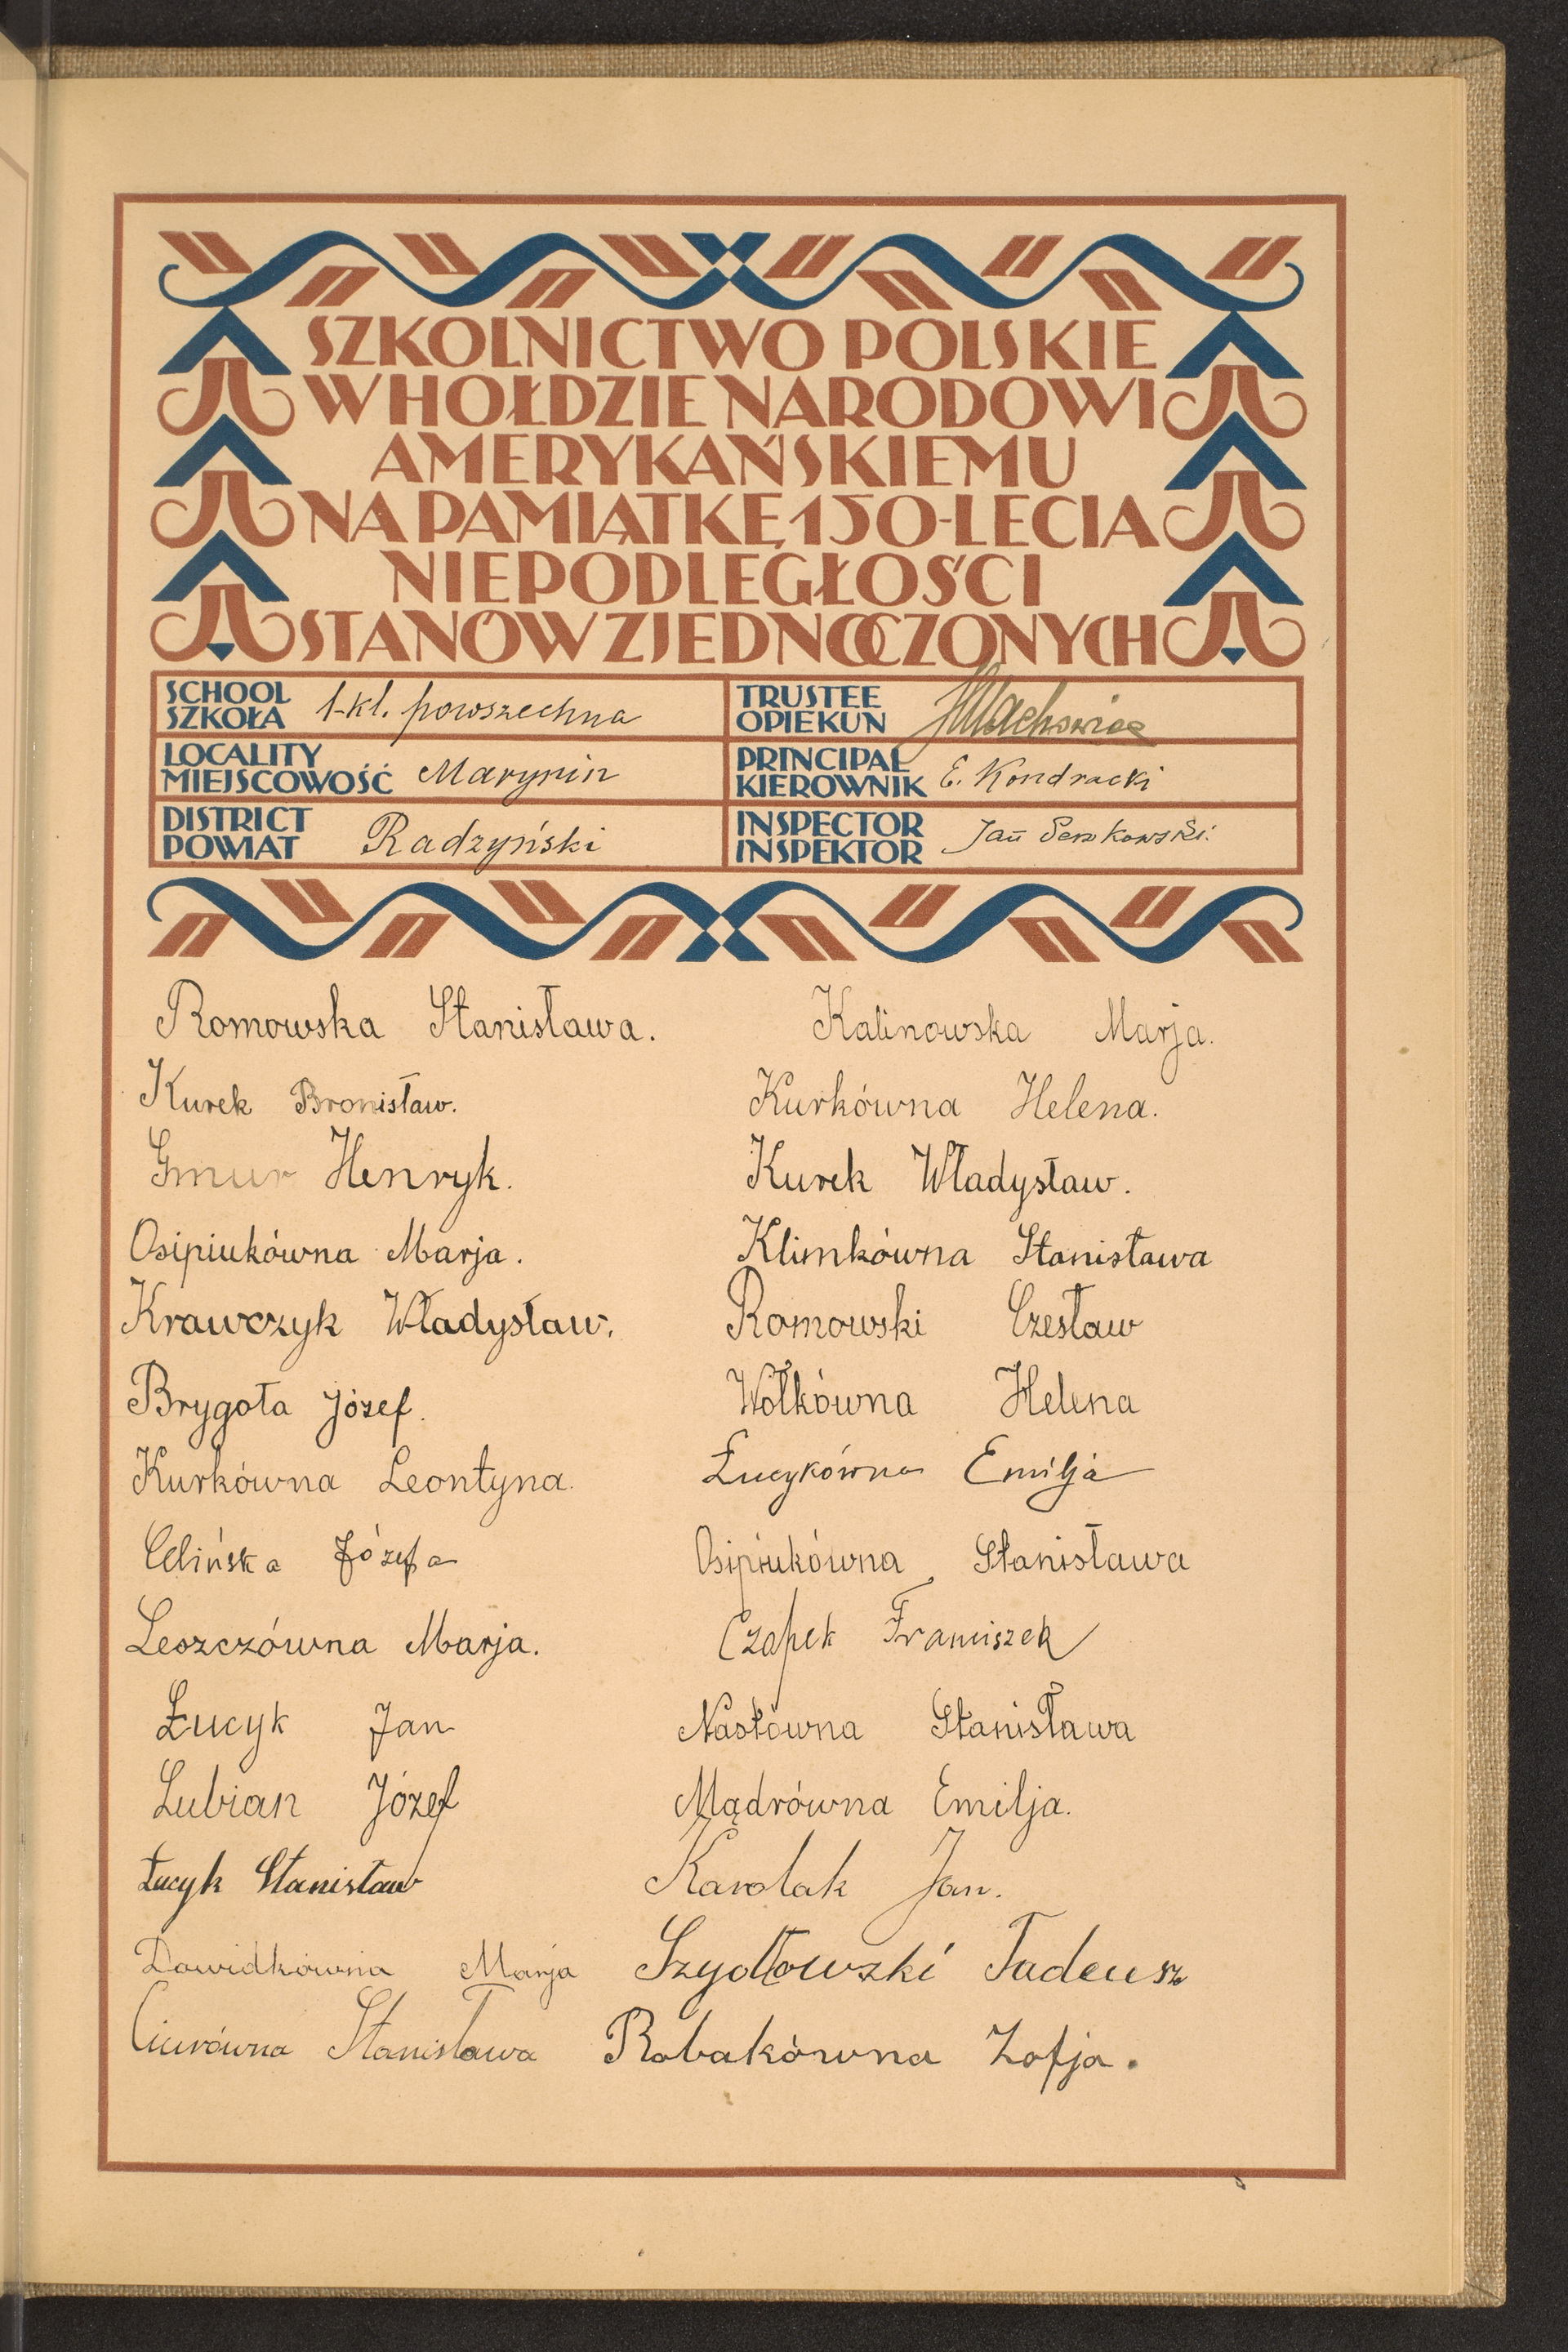 SZKOLNICTWO POLSKIE
W HOŁDZIE NARODOWI
AMERYKAŃSKIEMU
NA PAMIĄTKĘ 150-LECIA
NIEPODLEGŁOŚCI
STANÓW ZJEDNOCZONYCH
SCHOOL
SZKOŁA
1-kl. powszechna
TRUSTEE
OPIEKUN
LOCALITY
MIEJSCOWOŚĆ
Marynin
PRINCIPAL
KIEROWNIK
E. Kondracki
DISTRICT
POWIAT
Radzyński
INSPECTOR
INSPEKTOR
Jan
Romowska Stanisława.
Kurek Bronisław.
Gmur Henryk.
Osipiukówna Marja.
Krawczyk Władysław.
Brygoła Józef.
Kurkówna Leontyna.
Celińska Józefa
Leszczówna Marja.
Łucyk Jan
Lubian Józef
Łucyk Stanisław
Dawidkówna Marja
Ciurówna Stanisława
Kalinowska Marja.
Kurkówna Helena.
Kurek Władysław.
Klimkówna Stanisława
Romowski Czesław
Wołkówna Helena
Łucykówna Emilja
Osipiukówna Stanisława
Czapek Franciszek
Nastówna Stanisława
Mądrówna Emilja.
Karolak Jan.
Szydłowzki Tadeusz
Robakówna Zofja.